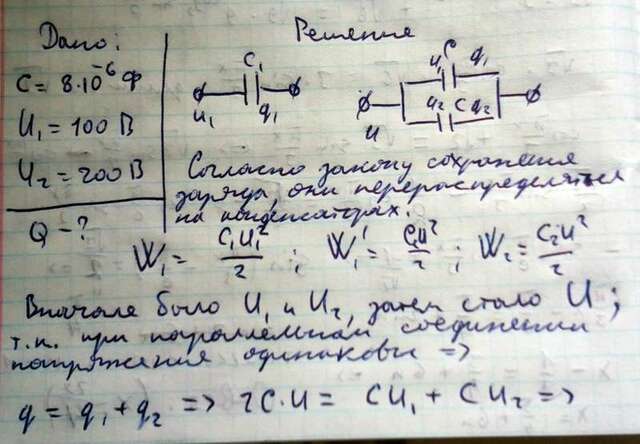 Дано:
Решение
C = 8·10⁻⁶ Ф
U₁ = 100 В
U₂ = 200 В
Q - ?
C₁
U₁ q₁
C
U₁ q₁
U₂ C q₂
U
Согласно закону сохранения
заряда, они перераспределятся
на конденсаторах.
W₁ = C₁U₁²/2 ; W₁' = C₁U²/2 ; W₂ = C₂U²/2
Вначале было U₁ и U₂, затем стало U ;
т.к. при параллельном соединении
напряжения одинаковы =>
q = q₁ + q₂ => 2C·U = CU₁ + CU₂ =>